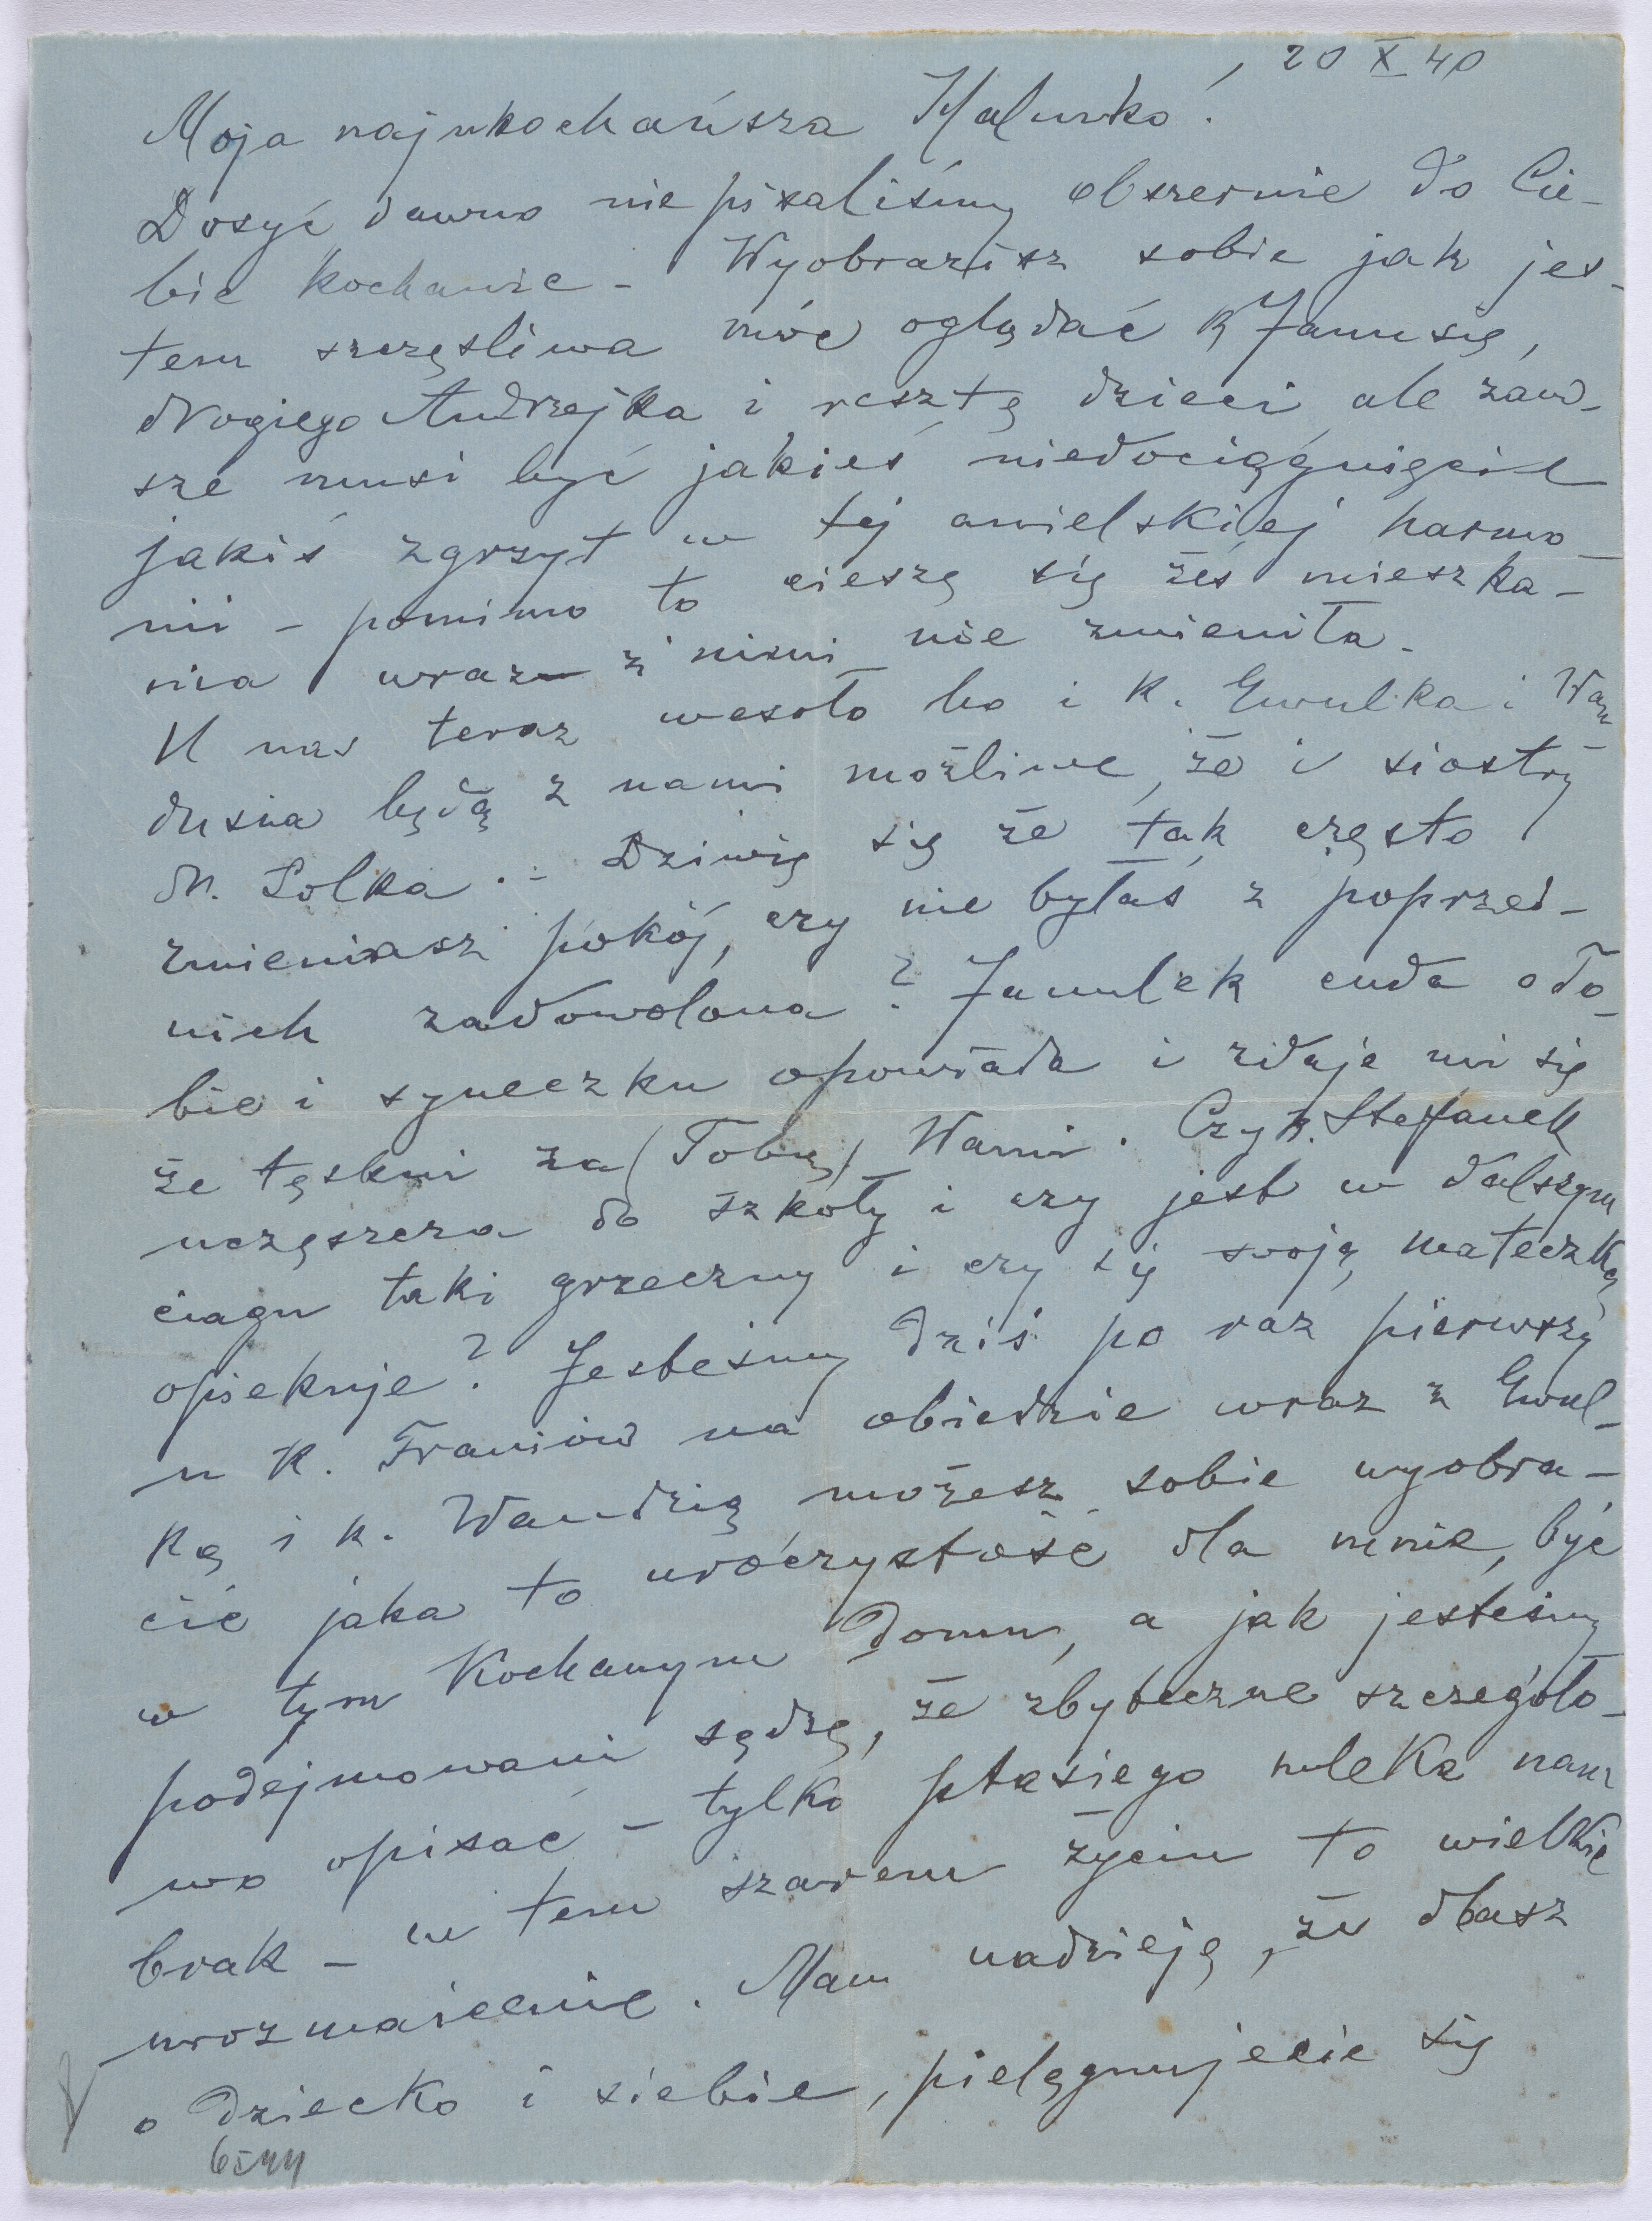 20 X 40
Moja najukochańsza Halunko!
Dosyć dawno nie pisaliśmy obszernie do Cie-
bie kochanie - Wyobrazisz sobie jak jes-
tem szczęśliwa móc oglądać k Janusię,
drogiego Andrzejka i resztę dzieci ale zaw-
sze musi być jakieś niedociągnięcie
jakiś zgrzyt w tej anielskiej harmo-
nii - pomimo to cieszę się żeś mieszka-
nia wraz z nimi nie zmieniła.
U nas teraz wesoło bo i k. Ewulka i Wan-
dusia będą z nami możliwe, że i siostry
dr. Lolka. - Dziwię się że tak często
zmieniasz pokój, czy nie byłaś z poprzed-
nich zadowolona? Janulek cuda o To-
bie i syneczku opowiada i zdaje mi się
że tęskni za (Tobą) Wami. Czy k. Stefanek
uczęszcza do szkoły i czy jest w dalszym
ciągu taki grzeczny i czy się swoją mateczką
opiekuje? Jesteśmy dziś po raz pierwszy
u k. Franiów na obiedzie wraz z Ewul-
ką i k. Wandzią możesz sobie wyobra-
cić jaka to uroczystość dla mnie, być
w tym Kochanym Domu, a jak jesteśmy
podejmowani sądzę, że zbyteczne szczegóło-
wo opisać - tylko ptasiego mleka nam
brak - w tem szarem życiu to wielkie
urozmaicenie. Mam nadzieję, że dbasz
o Dziecko i siebie, pielęgnujecie się